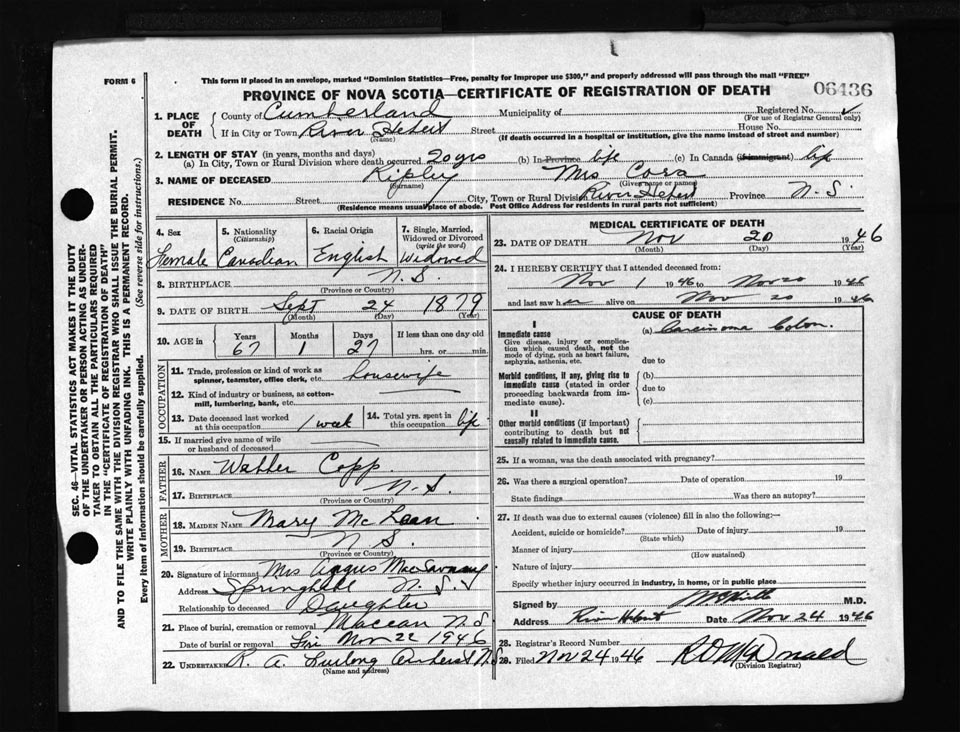 FORM 6
This form if placed in an envelope, marked "Dominion Statistics—Free, penalty for improper use $300," and properly addressed will pass through the mail "FREE"
PROVINCE OF NOVA SCOTIA—CERTIFICATE OF REGISTRATION OF DEATH
06436
SEC. 46—VITAL STATISTICS ACT MAKES IT THE DUTY
OF THE UNDERTAKER OR PERSON ACTING AS UNDER-
TAKER TO OBTAIN ALL THE PARTICULARS REQUIRED
IN THE "CERTIFICATE OF REGISTRATION OF DEATH"
AND TO FILE THE SAME WITH THE DIVISION REGISTRAR WHO SHALL ISSUE THE BURIAL PERMIT.
WRITE PLAINLY WITH UNFADING INK. THIS IS A PERMANENT RECORD.
Every item of information should be carefully supplied. (See reverse side for instructions.)
1. PLACE OF DEATH
County of Cumberland Municipality of Registered No.
(For use of Registrar General only)
If in City or Town River Hebert Street House No.
(Name) (If death occurred in a hospital or institution, give the name instead of street and number)
2. LENGTH OF STAY (in years, months and days)
(a) In City, Town or Rural Division where death occurred 20 yrs (b) In Province life (c) In Canada (if immigrant) life
3. NAME OF DECEASED Ripley Mrs Cora
(Surname) (Given name or names)
RESIDENCE No. Street City, Town or Rural Division River Hebert Province N.S.
(Residence means usual place of abode. Post Office Address for residents in rural parts not sufficient)
4. Sex
Female
5. Nationality
(Citizenship)
Canadian
6. Racial Origin
English
7. Single, Married,
Widowed or Divorced
(write the word)
Widowed
8. BIRTHPLACE N.S.
(Province or Country)
9. DATE OF BIRTH Sept 24 1879
(Month) (Day) (Year)
10. AGE in
Years Months Days If less than one day old
67 1 27 hrs. or min.
OCCUPATION
11. Trade, profession or kind of work as
spinner, teamster, office clerk, etc. housewife
12. Kind of industry or business, as cotton-
mill, lumbering, bank, etc.
13. Date deceased last worked
at this occupation 1 week
14. Total yrs. spent in
this occupation life
15. If married give name of wife
or husband of deceased
FATHER
16. NAME Copp.
17. BIRTHPLACE N.S.
(Province or Country)
MOTHER
18. MAIDEN NAME Mary McLean
19. BIRTHPLACE N.S.
(Province or Country)
20. Signature of informant Mrs Angus
Address Springhill N.S.
Relationship to deceased Daughter
21. Place of burial, cremation or removal Maccan N.S
Date of burial or removal Nov 22 1946
22. UNDERTAKER R. A. Furlong Amherst N.S
(Name and address)
MEDICAL CERTIFICATE OF DEATH
23. DATE OF DEATH Nov 20 1946
(Month) (Day) (Year)
24. I HEREBY CERTIFY that I attended deceased from:
Nov 1 1946 to Nov 20 1946
and last saw her alive on Nov 20 1946
CAUSE OF DEATH
I
Immediate cause
Give disease, injury or complica-
tion which caused death, not the
mode of dying, such as heart failure,
asphyxia, asthenia, etc.
(a) Carcinoma Colon.
due to
Morbid conditions, if any, giving rise to
immediate cause (stated in order
proceeding backwards from im-
mediate cause).
(b)
due to
(c)
II
Other morbid conditions (if important)
contributing to death but not
causally related to immediate cause.
25. If a woman, was the death associated with pregnancy?
26. Was there a surgical operation? Date of operation 19
State findings Was there an autopsy?
27. If death was due to external causes (violence) fill in also the following:—
Accident, suicide or homicide? Date of injury 19
(State which)
Manner of injury
(How sustained)
Nature of injury
Specify whether injury occurred in industry, in home, or in public place
Signed by M.D.
Address River Hebert Date Nov 24 1946
28. Registrar's Record Number
29. Filed Nov 24 1946 R D McDonald
(Division Registrar)